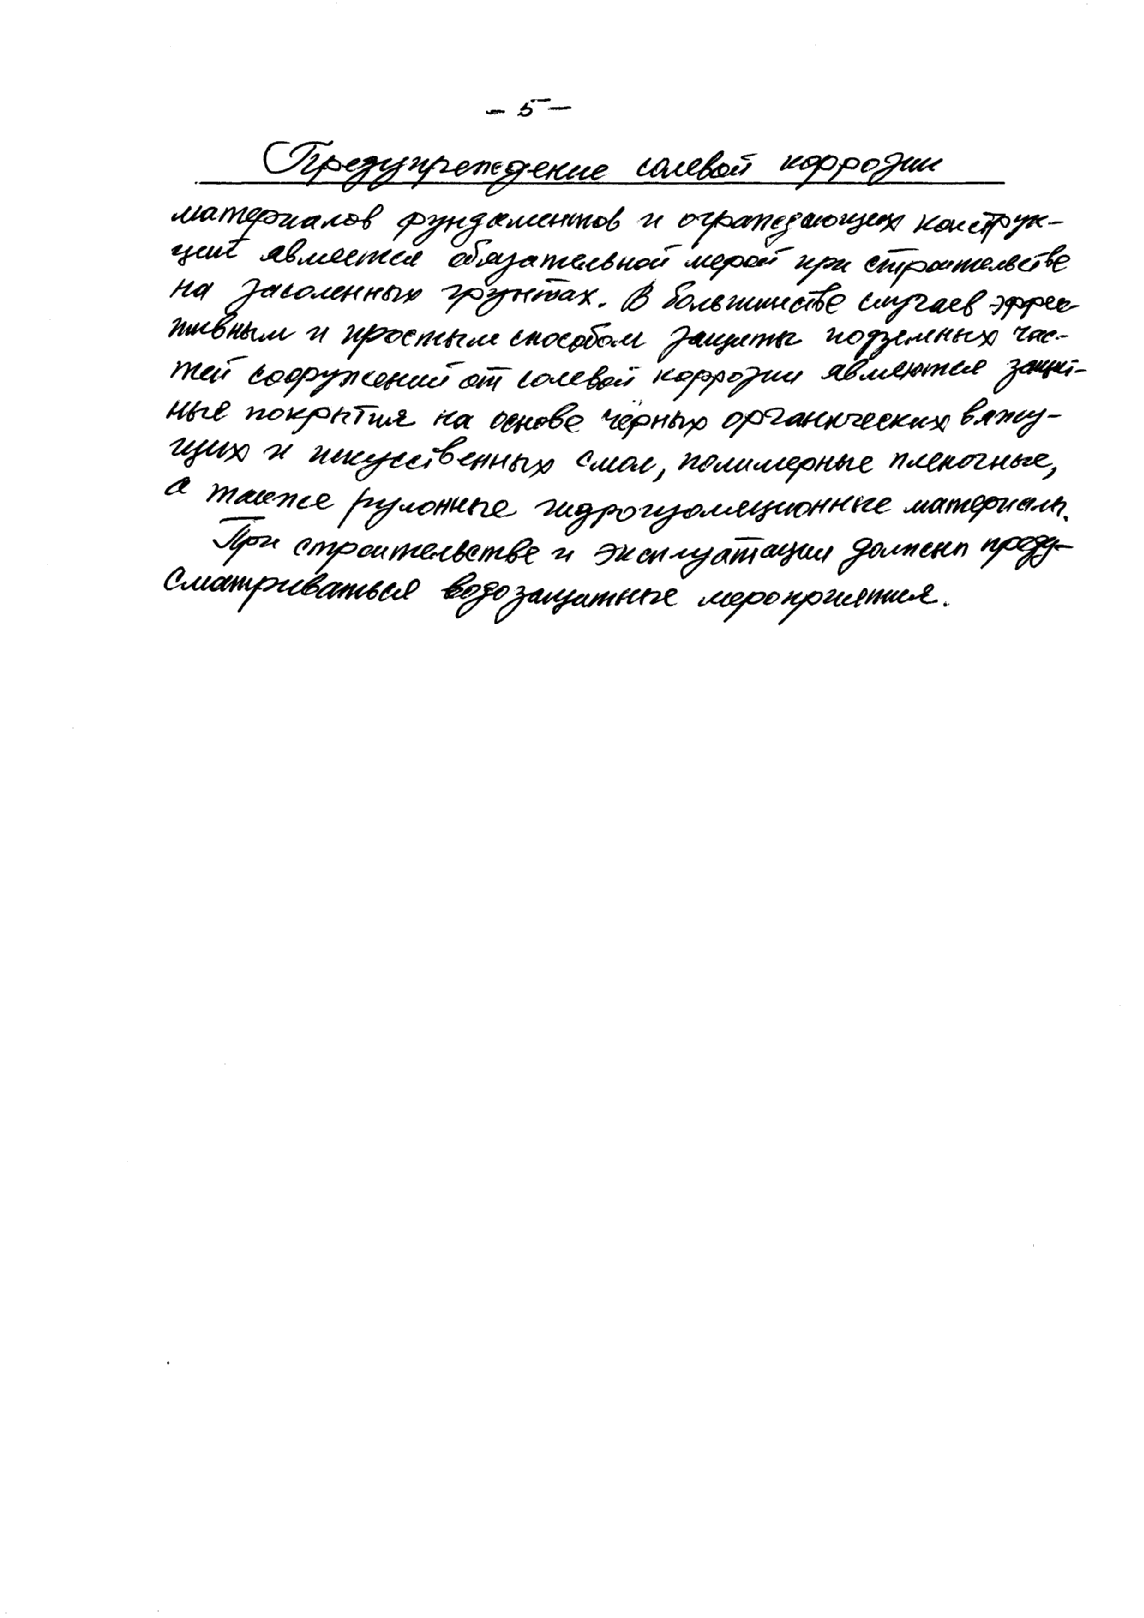 - 5 -
Предупреждение солевой коррозии
материалов фундаментов и ограждающих конструк-
ций является обязательной мерой при строительстве
на засоленных грунтах. В большинстве случаев эффек
тивным и простым способом защиты подземных час-
тей сооружений от солевой коррозии являются защит-
ные покрытия на основе чёрных органических вяжу-
щих и искусственных смол, полимерные пленочные,
а также рулонные гидроизоляционные материалы.
При строительстве и эксплуатации должны преду-
сматриваться водозащитные мероприятия.